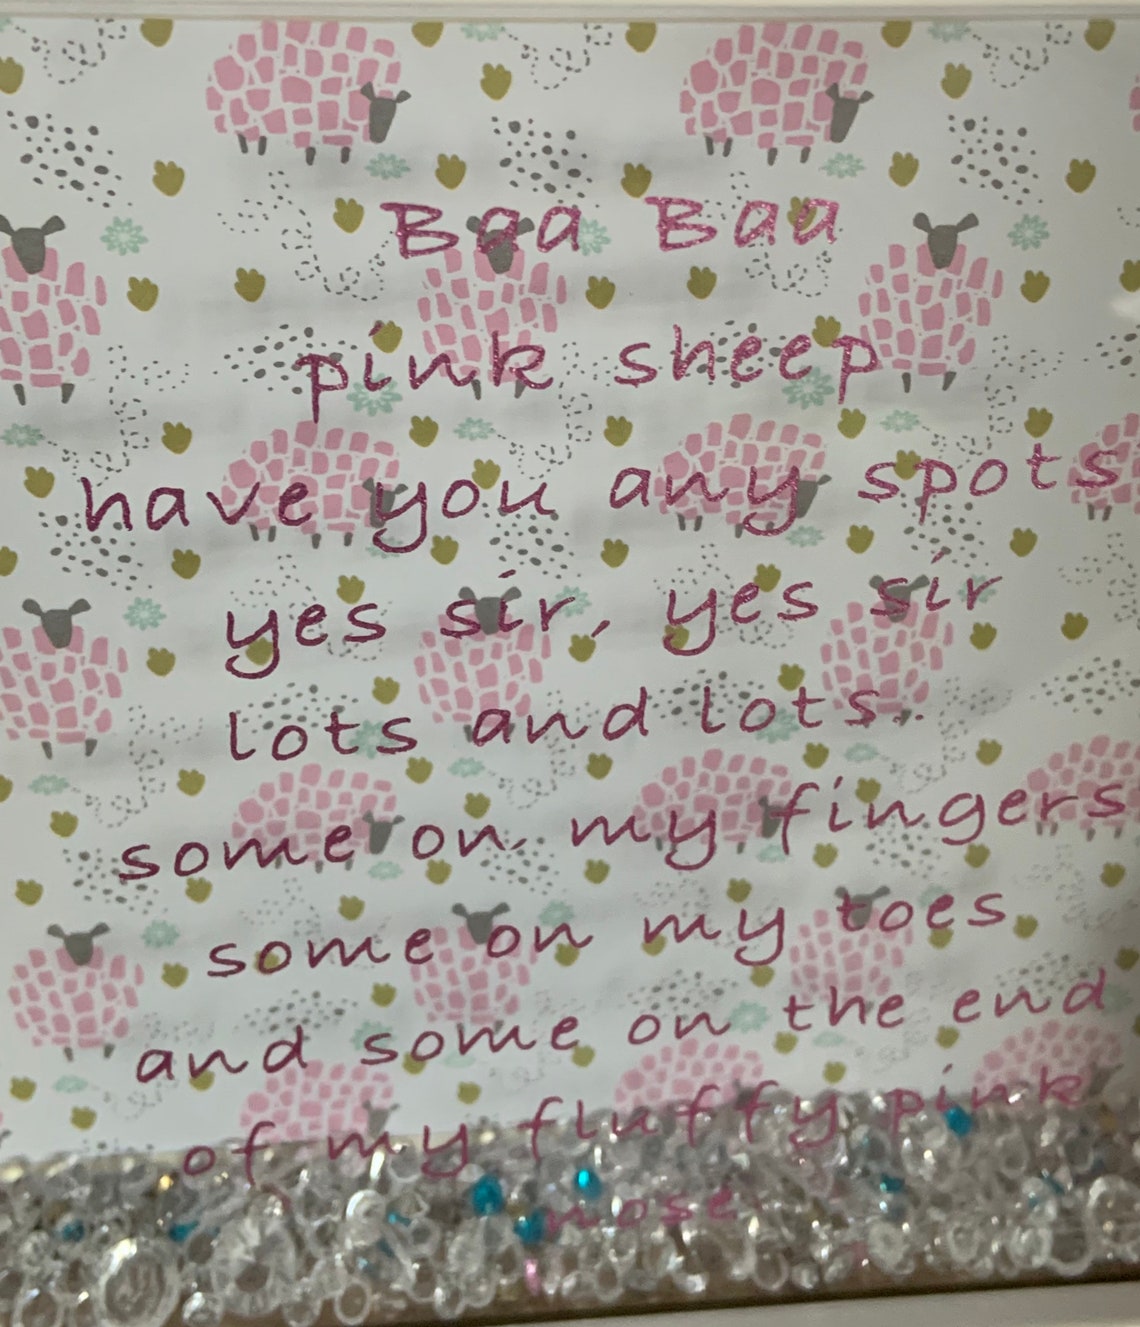 Baa Baa
pink sheep
have you any spots
yes sir, yes sir
lots and lots..
some on my fingers
some on my toes
and some on the end
of my fluffy pink
nose